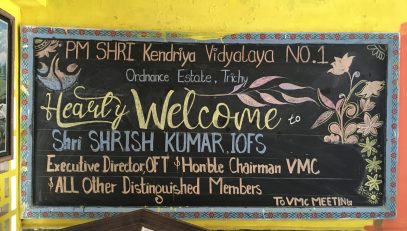 PM SHRI Kendriya Vidyalaya NO.1
Ordnance Estate, Trichy
Hearty Welcome to
Shri SHRISH KUMAR.IOFS
Executive Director,OFT & Hon'ble Chairman VMC
& ALL Other Distinguished Members
To VMC MEETING